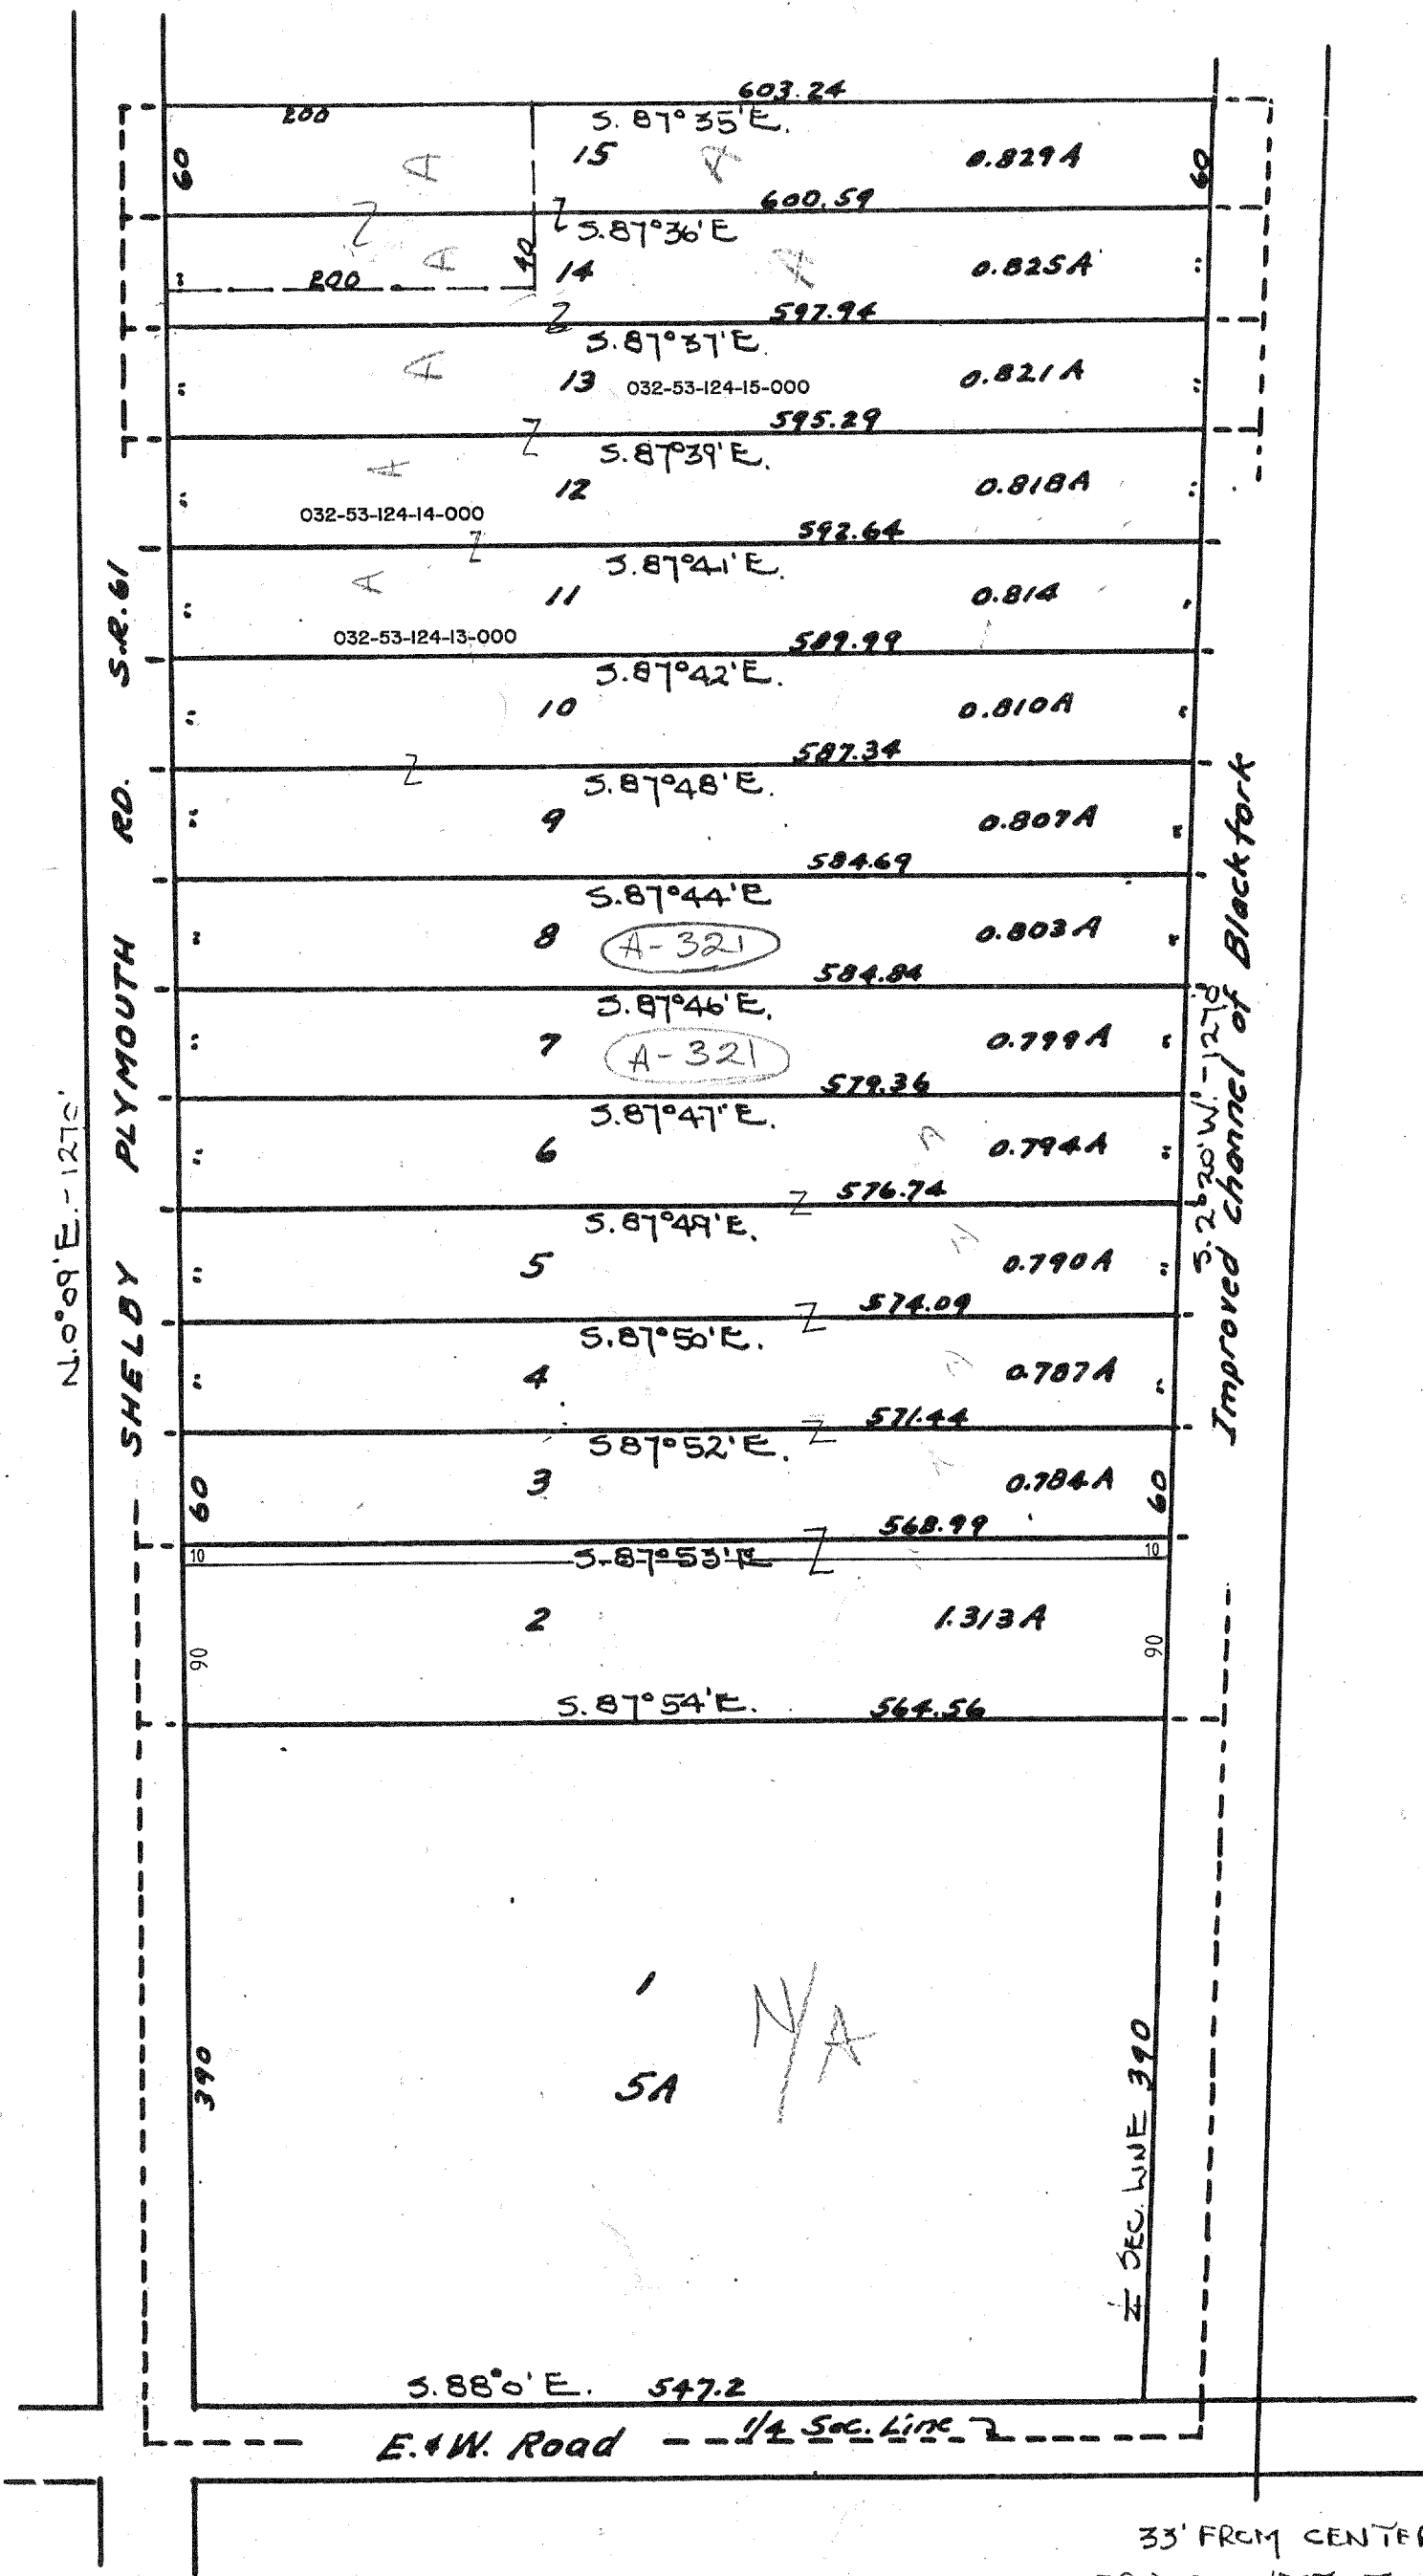 603.24
200
S. 87°35'E.
60
15
A
A
0.829A
60
600.59
S.87°36'E
A
40
14
A
0.825A
"
200
"
597.94
S.87°37'E.
A
13
032-53-124-15-000
0.821A
"
"
595.29
S.87°39'E.
A
12
0.818A
"
"
032-53-124-14-000
592.64
S.87°41'E.
A
11
0.814
"
032-53-124-13-000
589.99
S.87°42'E.
10
0.810A
"
587.34
S.87°48'E.
9
0.807A
"
"
584.69
S.87°44'E
8
A-321
0.803A
"
"
584.84
S.87°46'E.
7
A-321
0.799A
"
"
579.36
S.87°47'E.
6
0.794A
"
"
576.74
S.87°49'E.
5
0.790A
"
"
574.09
S.87°50'E.
4
0.787A
"
"
571.44
S87°52'E.
3
0.784A
60
60
568.99
10
S.87°53'E
10
2
1.313A
90
90
S.87°54'E.
564.56
1
N/A
5A
390
1/4 SEC. LINE 390
S.88°0'E.
547.2
E.&W. Road
1/4 Sec. Line
N.0°09'E.-1270'
SHELBY PLYMOUTH RD. S.R.61
S.2°20'W.-1270'
Improved channel of Blackfork
33' FROM CENTER